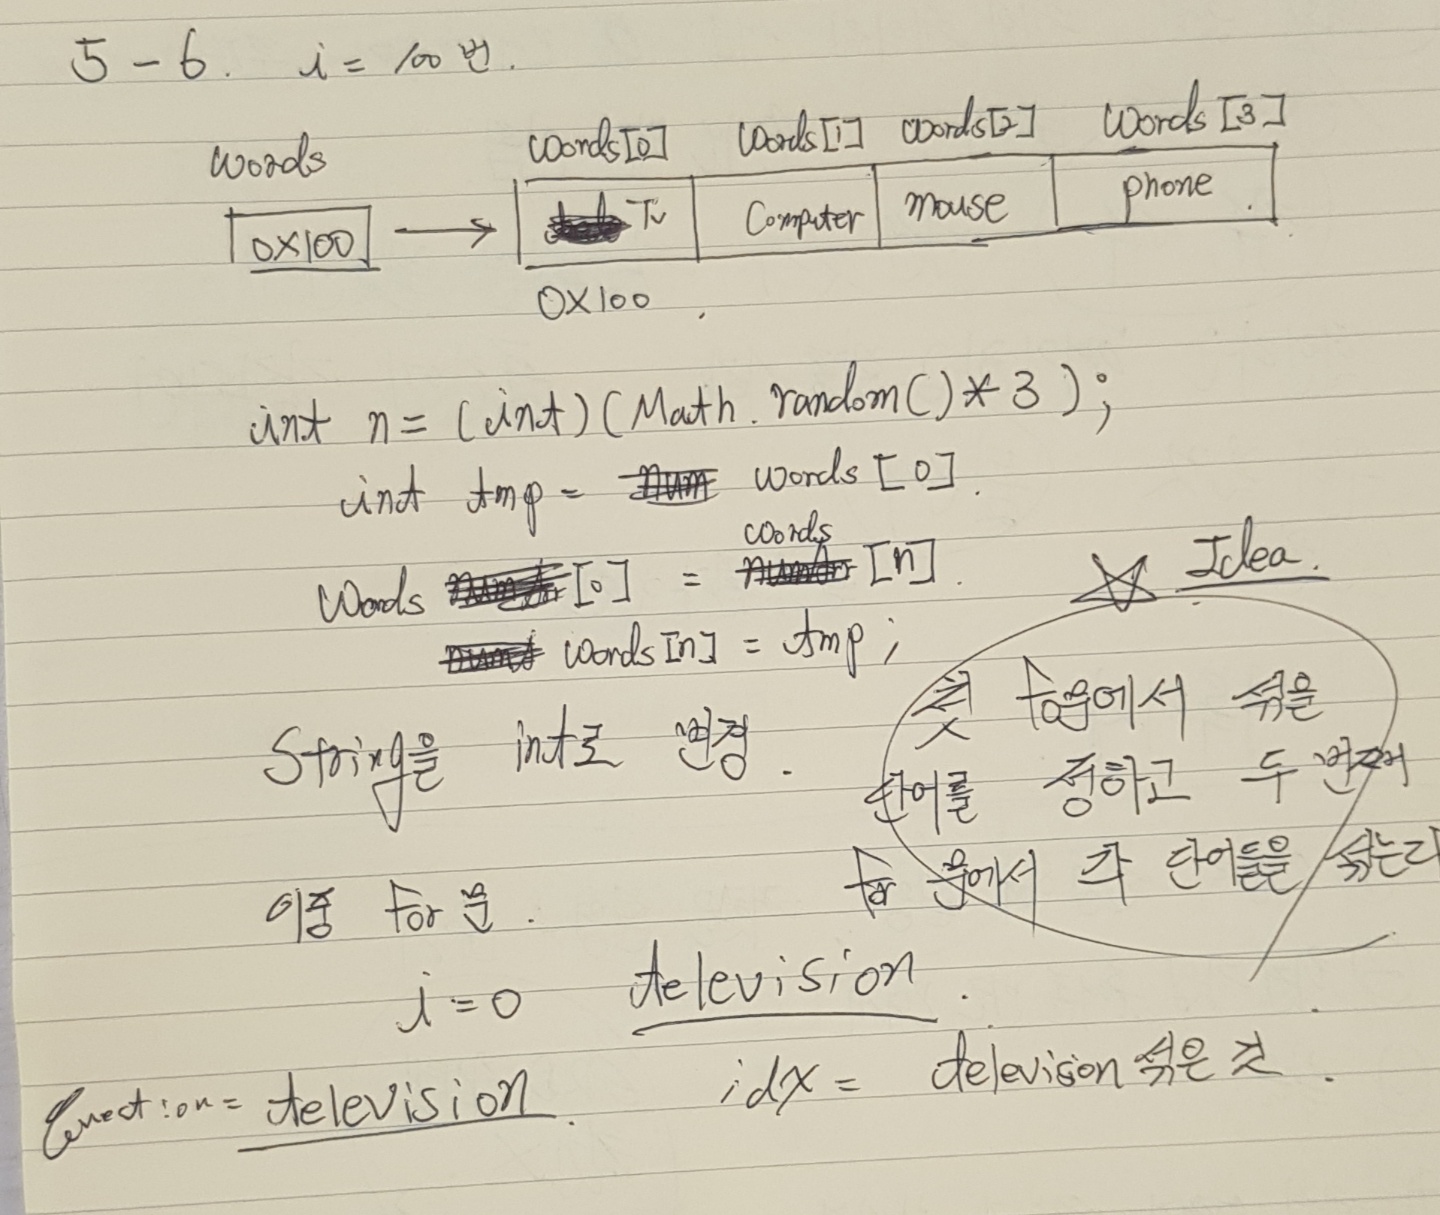 5-6. i = 100번.
words words[0] words[1] words[2] words[3]
0x100 → Tv Computer mouse phone
0x100
int n = (int)(Math.random()*3);
int tmp = words[0].
words
Words [0] = [n].
words[n] = tmp;
Idea.
첫 for문에서 섞을
String을 int로 변경.
단어를 정하고 두 번째
for 문에서 각 단어들을 섞는다
이중 for 문.
i=0 television.
Question = television. idx = television 섞은 것.